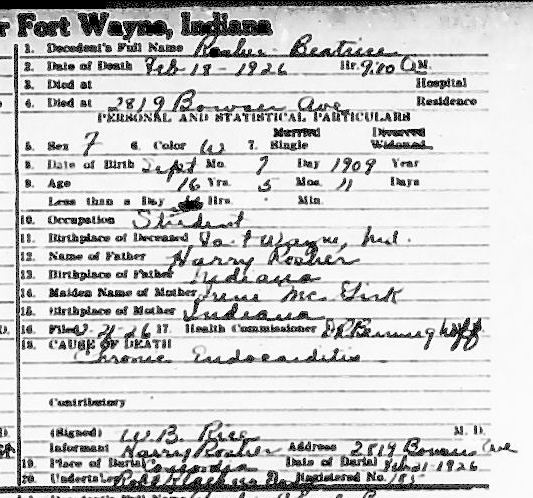 r Fort Wayne, Indiana
1. Decedent's Full Name Rosher Beatrice
2. Date of Death Feb-18-1926 Hr. 9:00 A M.
3. Died at Hospital
4. Died at 2819 Bowser Ave Residence
PERSONAL AND STATISTICAL PARTICULARS
Married Divorced
5. Sex F 6. Color W 7. Single Widowed
8. Date of Birth Sept Mo. 7 Day 1909 Year
9. Age 16 Yrs. 5 Mos. 11 Days
Less than a Day Hrs. Min.
10. Occupation Student
11. Birthplace of Deceased Fort Wayne, Ind.
12. Name of Father Harry Rosher
13. Birthplace of Father Indiana
14. Maiden Name of Mother Irene Mc
15. Birthplace of Mother Indiana
16. Filed 2-21-26 17. Health Commissioner
18. CAUSE OF DEATH
Chronic Endocarditis
Contributory
(Signed) W. B. Rice M. D.
Informant Harry Rosher Address 2819 Bowser Ave
19. Place of Burial Concordia Date of Burial Feb 21 1926
20. Undertaker Robt Registered No. 185